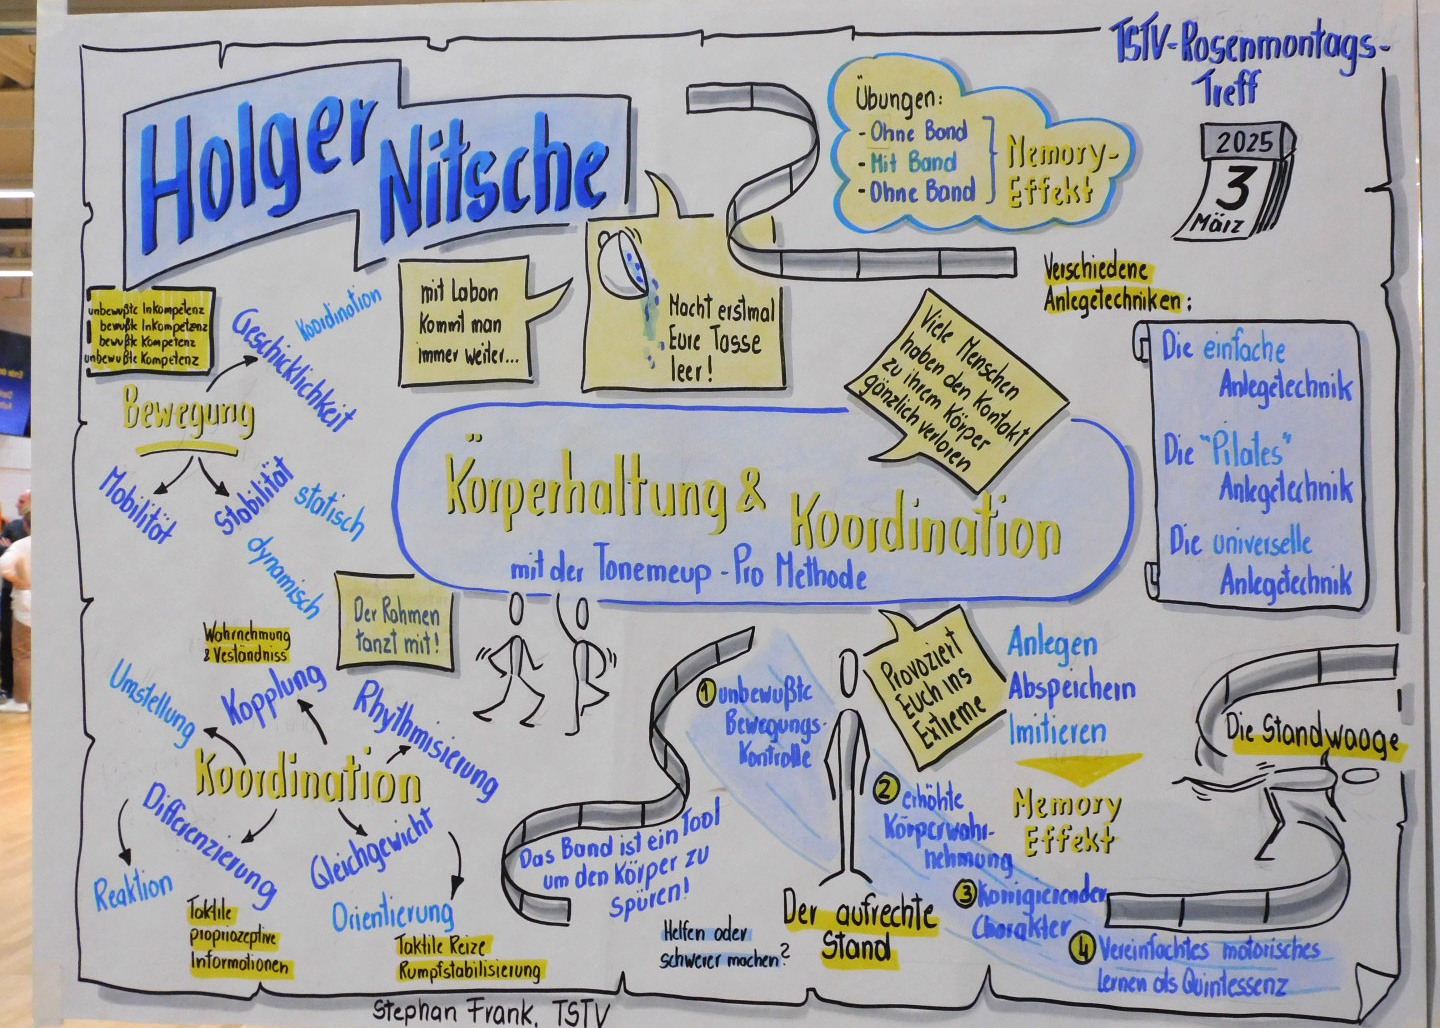 TSTV-Rosenmontags-
Treff
2025
3
März
Holger
Nitsche
Übungen:
- Ohne Band
- Mit Band
- Ohne Band
Memory-
Effekt
mit Laban
Kommt man
immer weiter...
Macht erstmal
Eure Tasse
leer!
Viele Menschen
haben den Kontakt
zu ihrem Körper
gänzlich verloren
Verschiedene
Anlegetechniken:
Die einfache
Anlegetechnik
Die "Pilates"
Anlegetechnik
Die universelle
Anlegetechnik
unbewußte Inkompetenz
bewußte Inkompetenz
bewußte Kompetenz
unbewußte Kompetenz
Bewegung
Geschicklichkeit
Koordination
Mobilität
Stabilität
statisch
dynamisch
Körperhaltung &
Koordination
mit der Tonemeup-Pro Methode
Der Rahmen
tanzt mit!
Wahrnehmung
& Veständniss
Umstellung
Kopplung
Rhythmisierung
Koordination
Differenzierung
Gleichgewicht
Reaktion
Orientierung
Taktile
propriozeptive
Informationen
Taktile Reize
Rumpfstabilisierung
Das Band ist ein Tool
um den Körper zu
spüren!
Helfen oder
schwerer machen?
Der aufrechte
Stand
1 unbewußte
Bewegungs-
Kontrolle
2 erhöhte
Körperwahr-
nehmung
3 Korrigierender
Charakter
4 Vereinfachtes motorisches
lernen als Quintessenz
Provoziert
Euch ins
Extreme
Anlegen
Abspeichern
Imitieren
Memory
Effekt
Die Standwaage
Stephan Frank, TSTV